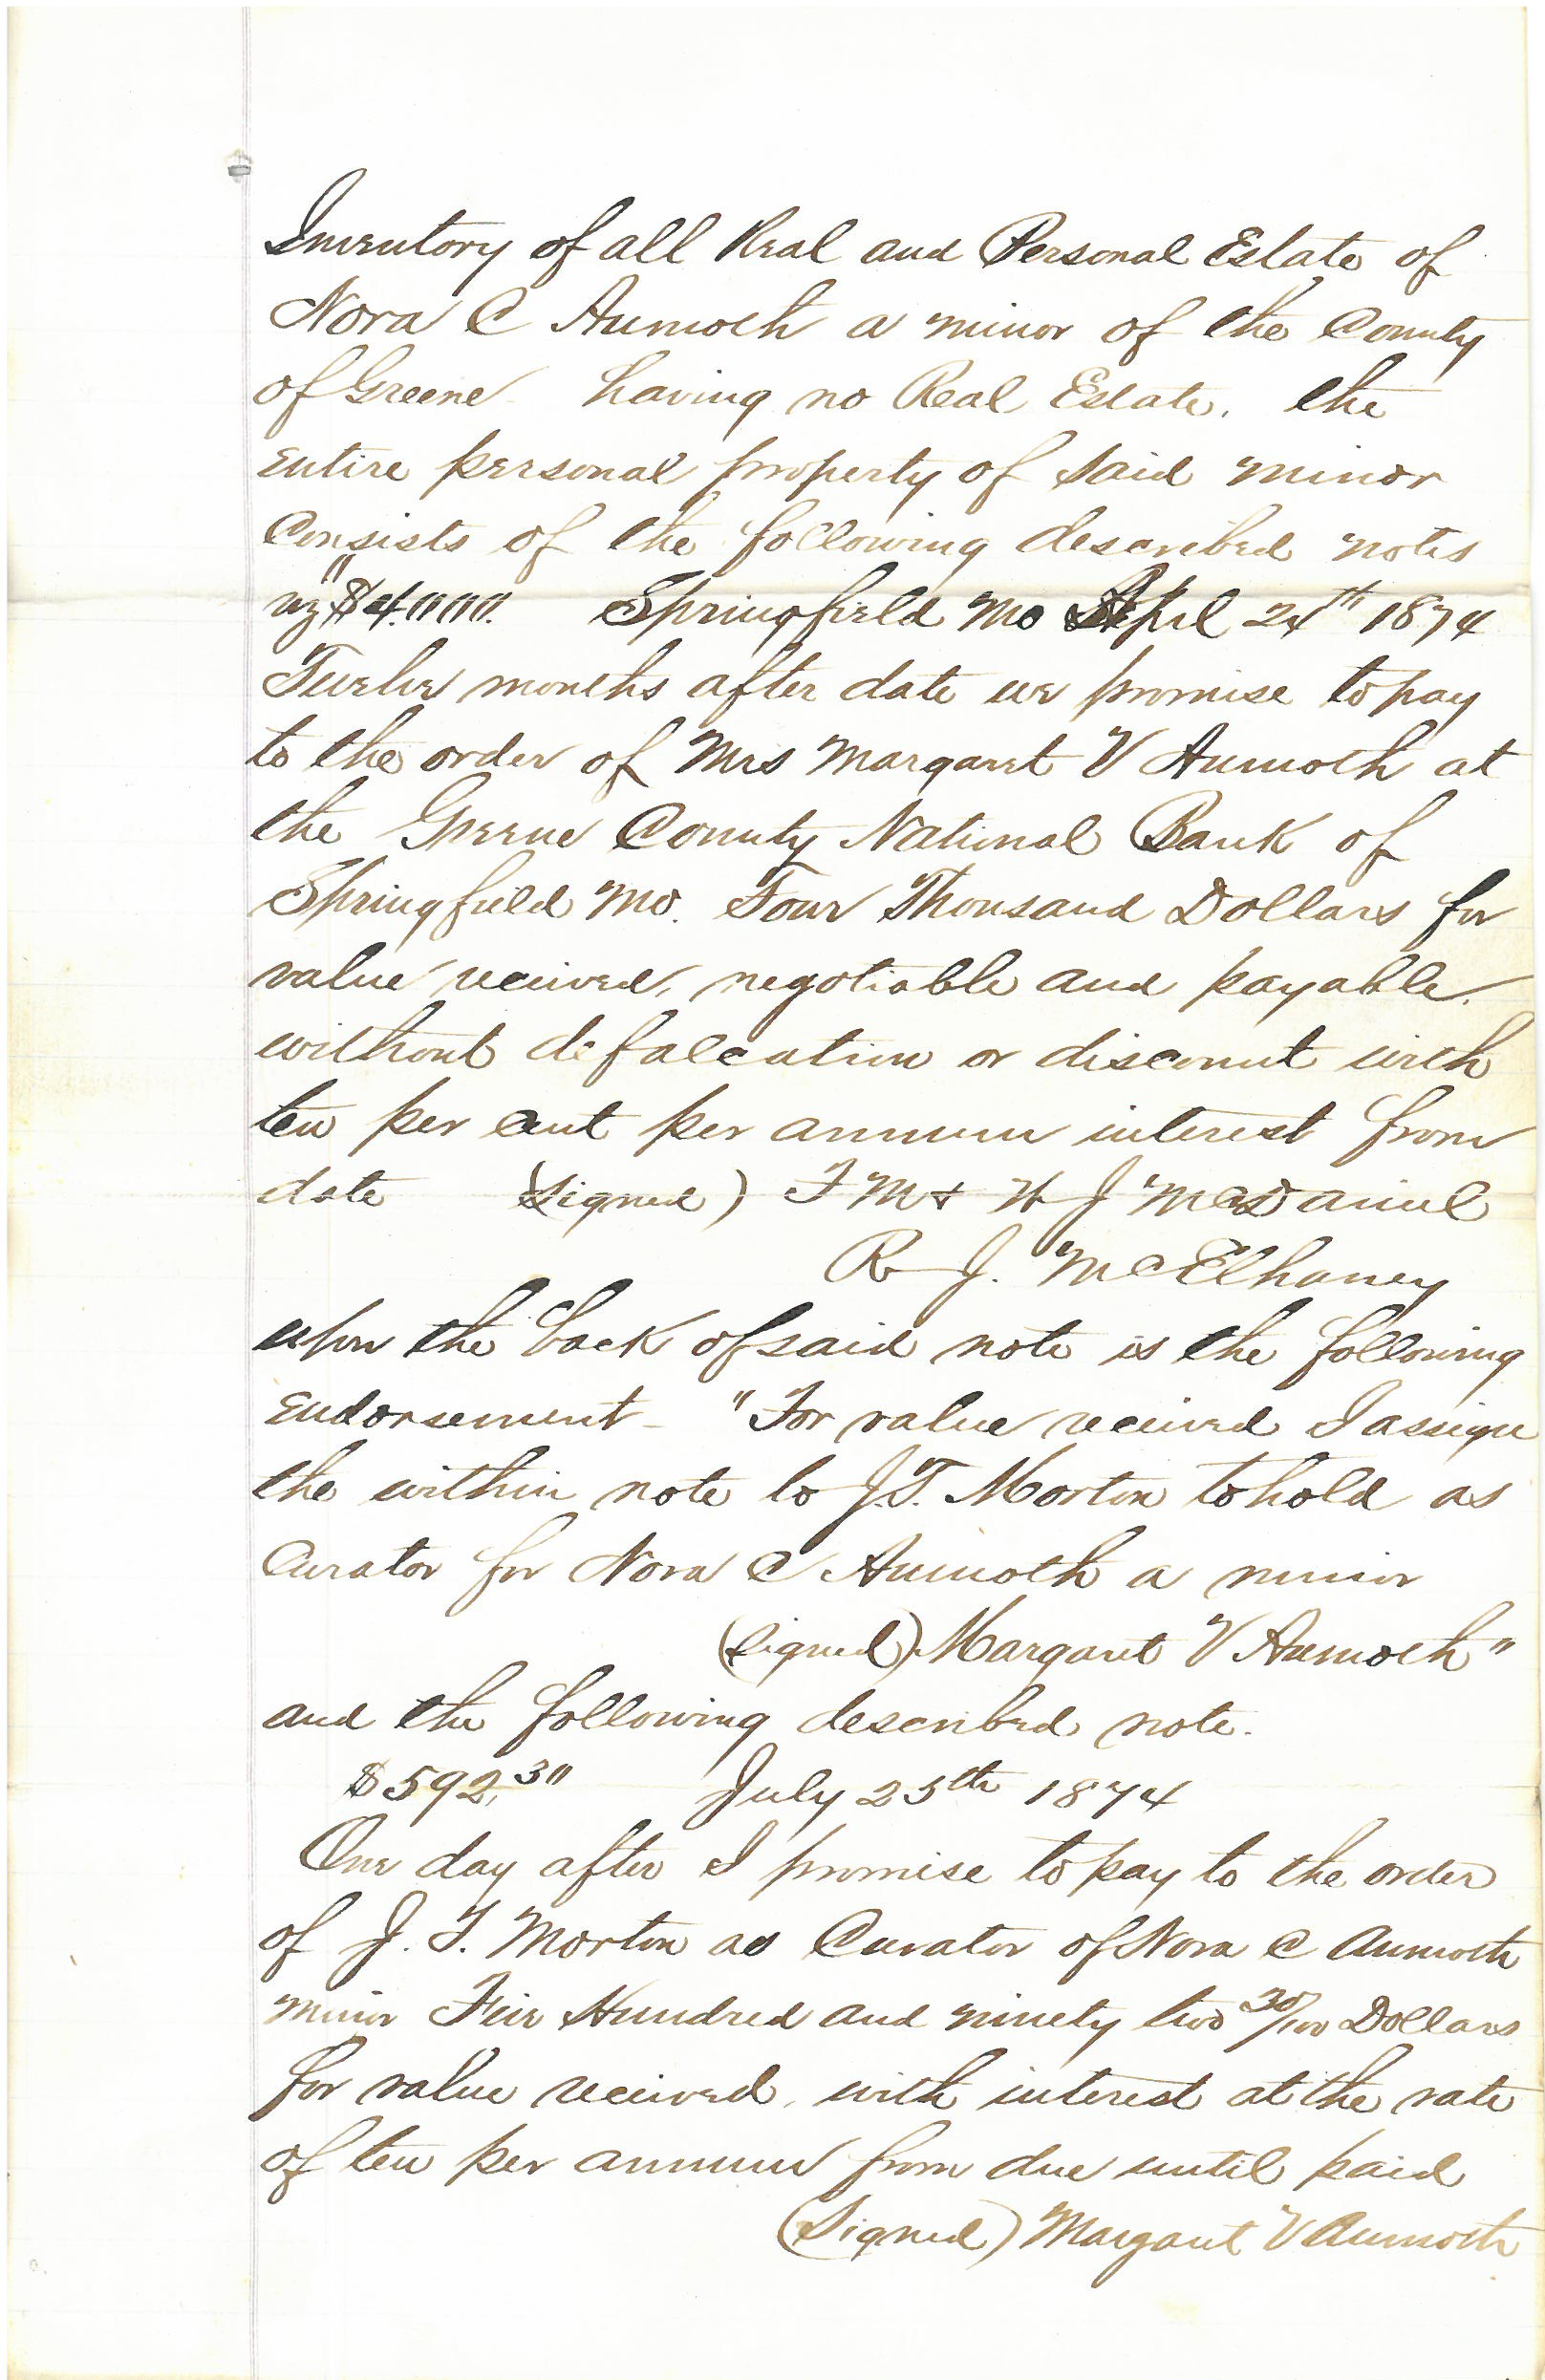 Inventory of all Real and Personal Estate of
Nora C Aumoth a minor of the County
of Greene having no Real Estate. the
entire personal property of said minor
Consists of the following described notes
viz "$4.000. Springfield Mo April 24th 1874
Twelve months after date we promise to pay
to the order of Mrs Margaret V Aumoth at
the Greene County National Bank of
Springfield Mo. Four Thousand Dollars for
value received, negotiable and payable.
without defalcation or discount with
ten per cent per annum interest from
date (Signed) F M & H J McDaniel
R J. McElhaney
upon the back of said note is the following
endorsement - "For value received I assign
the within note to J.T. Morton to hold as
Curator for Nora C Aumoth a minor
(Signed) Margaret V Aumoth"
and the following described note.
$592,30 July 25th 1874
One day after I promise to pay to the order
of J. T. Morton as Curator of Nora C Aumoth
minor Five Hundred and ninety two 30/100 Dollars
for value received, with interest at the rate
of ten per annum from due until paid
(Signed) Margaret V Aumoth